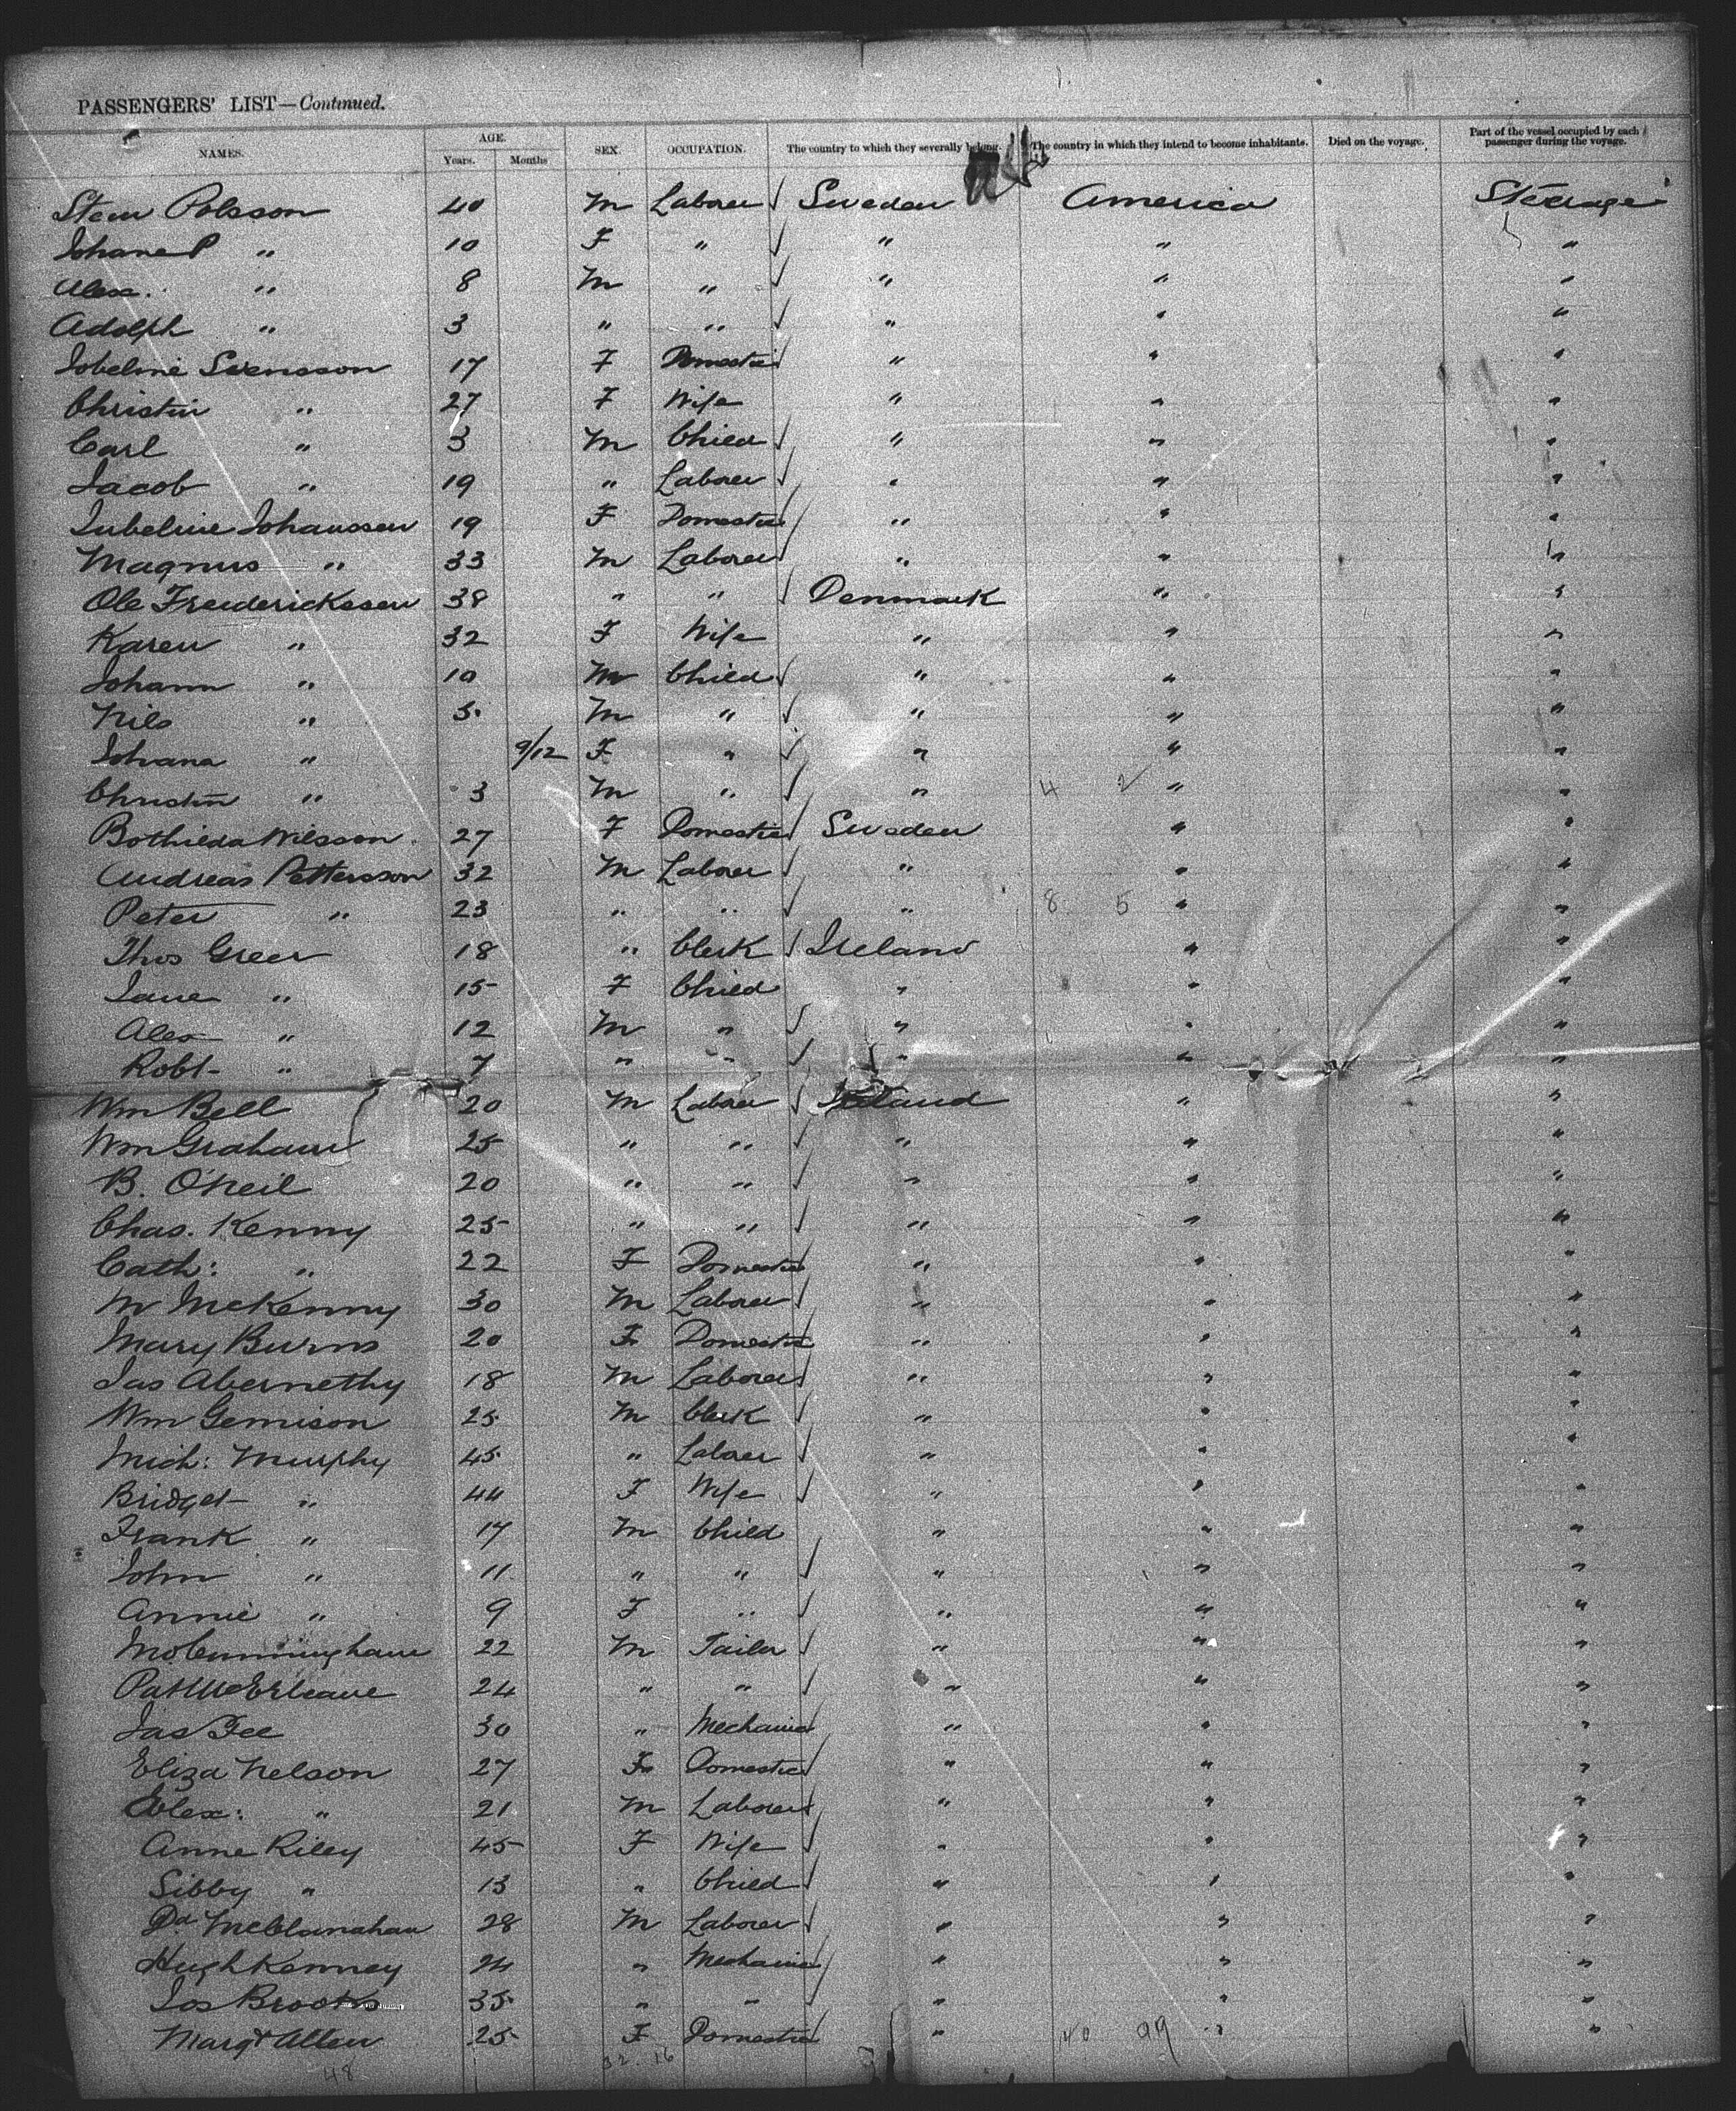 PASSENGERS' LIST—Continued.
NAMES. AGE. Years. Months SEX. OCCUPATION. The country to which they severally belong. The country in which they intend to become inhabitants. Died on the voyage. Part of the vessel occupied by each passenger during the voyage.
Polsson 40 M Laborer Sweden America Steerage
Johane P " 10 F " " " "
Alex. " 8 M " " " "
Adolph " 3 " " " " "
Svensson 17 F Domestic " " "
Christin " 27 F Wife " " "
Carl " 3 M Child " " "
Jacob " 19 " Laborer " " "
Johanssen 19 F Domestic " " "
Magnus " 33 M Laborer " " "
Ole Frederickssen 38 " " Denmark " "
Karen " 32 F Wife " " "
Johann " 10 M Child " " "
Nils " 5 M " " " "
Johana " 9/12 F " " " "
Christin " 3 M " " 4 2 " "
Bothilda Nilsson 27 F Domestic Sweden " "
Andreas Pettersson 32 M Laborer " " "
Peter " 23 " " " 8 5 " "
Thos Greer 18 " Clerk Ireland " "
Jane " 15 F Child " " "
Alex " 12 M " " " "
Robt " 7 " " " " "
Wm Bell 20 M Laborer Ireland " "
Wm Graham 25 " " " " "
B. O'Neil 20 " " " " "
Chas. Kenny 25 " " " " "
Cath: " 22 F Domestic " " "
M McKenny 30 M Laborer " " "
Mary Burns 20 F Domestic " " "
Jas Abernethy 18 M Laborer " " "
Wm Gemison 25 M Clerk " " "
Mich: Murphy 45 " Laborer " " "
Bridget " 44 F Wife " " "
Frank " 17 M Child " " "
John " 11 " " " " "
Annie " 9 F " " " "
Cunningham 22 M Tailor " " "
Pat McErleane 24 " " " " "
Jas Fee 30 " Mechanic " " "
Eliza Nelson 27 F Domestic " " "
Alex: " 21 M Laborer " " "
Anne Riley 45 F Wife " " "
Sibby " 13 " Child " " "
Da McClanahan 28 M Laborer " " "
Hugh Kenney 24 " Mechanic " " "
Jos Brooks 35 " " " " "
Margt Allen 25 F Domestic " 40 99 " "
48 32 16